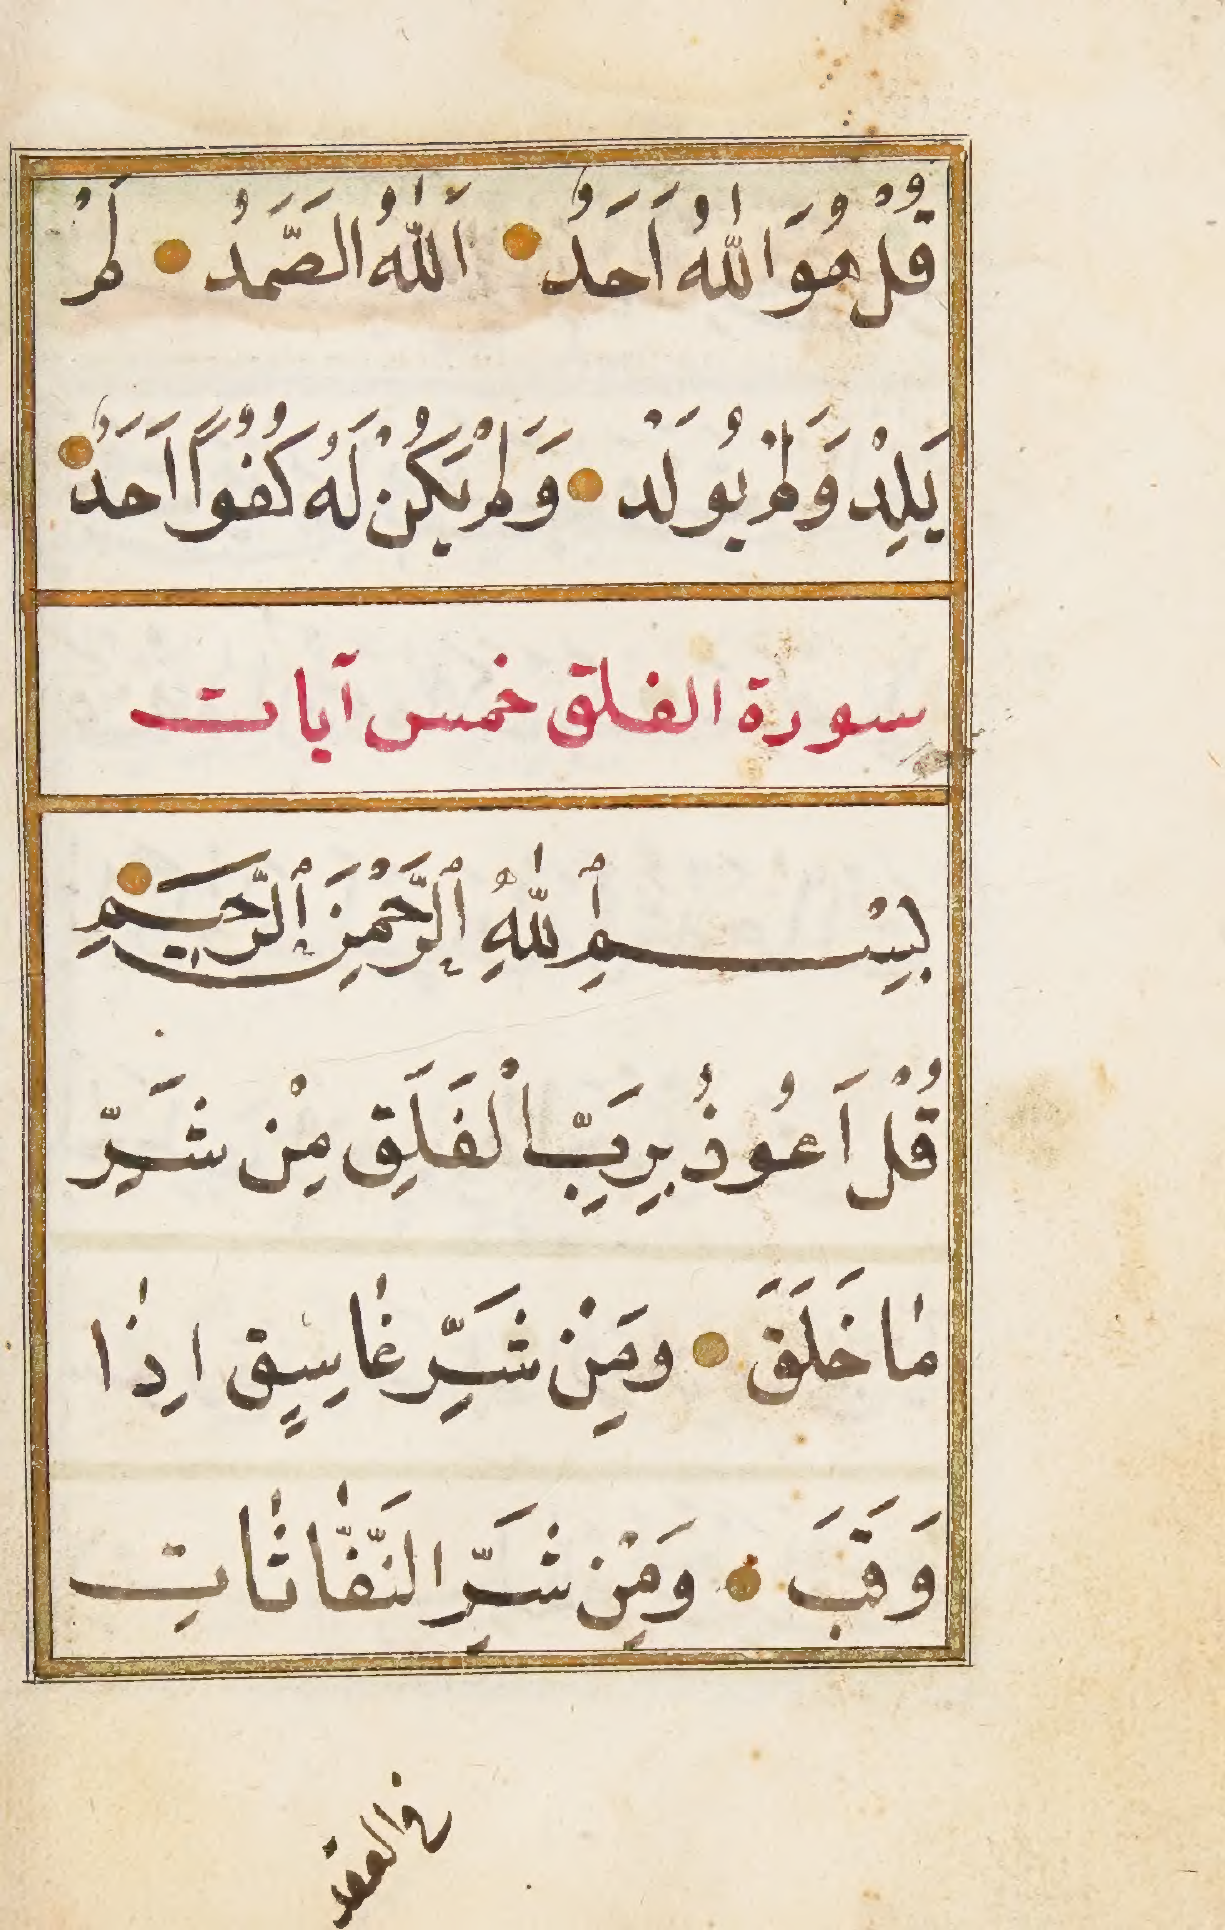 قُلْ هُوَ اللّٰهُ اَحَدٌ اَللّٰهُ الصَّمَدُ لَمْ
يَلِدْ وَلَمْ يُولَدْ وَلَمْ يَكُنْ لَهُ كُفُوًا اَحَدٌ
سورة الفلق خمس آيات
بِسْمِ اللّٰهِ الرَّحْمٰنِ الرَّحِيمِ
قُلْ اَعُوذُ بِرَبِّ الْفَلَقِ مِنْ شَرِّ
مٰا خَلَقَ ومَِنْ شَرِّ غٰاسِقٍ اِذٰا
وَقَبَ وَمِنْ شَرِّ النَّفّٰاثٰاتِ
في العقد